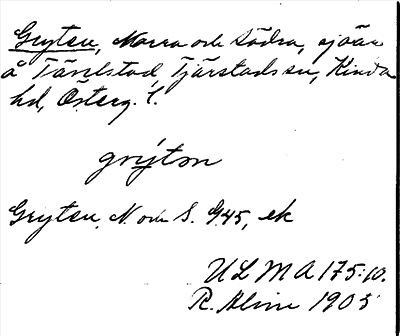 Gryten, Norra och Södra, sjöar
å Tärelstad, Tjärstads sn, Kinda
hd, Österg. l.
grýtən
Gryten, N. och S. G45, ek
ULMA 175:10.
R. 1905